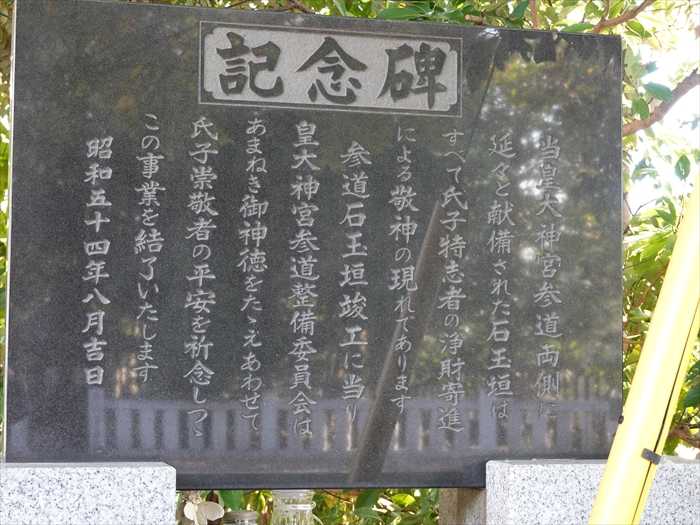 記念碑
当皇大神宮参道両側に
延々と献備された石玉垣は
すべて氏子特志者の浄財寄進
による敬神の現れであります
参道石玉垣竣工に当り
皇大神宮参道整備委員会は
あまねき御神徳をたゝえあわせて
氏子崇敬者の平安を祈念しつゝ
この事業を結了いたします
昭和五十四年八月吉日